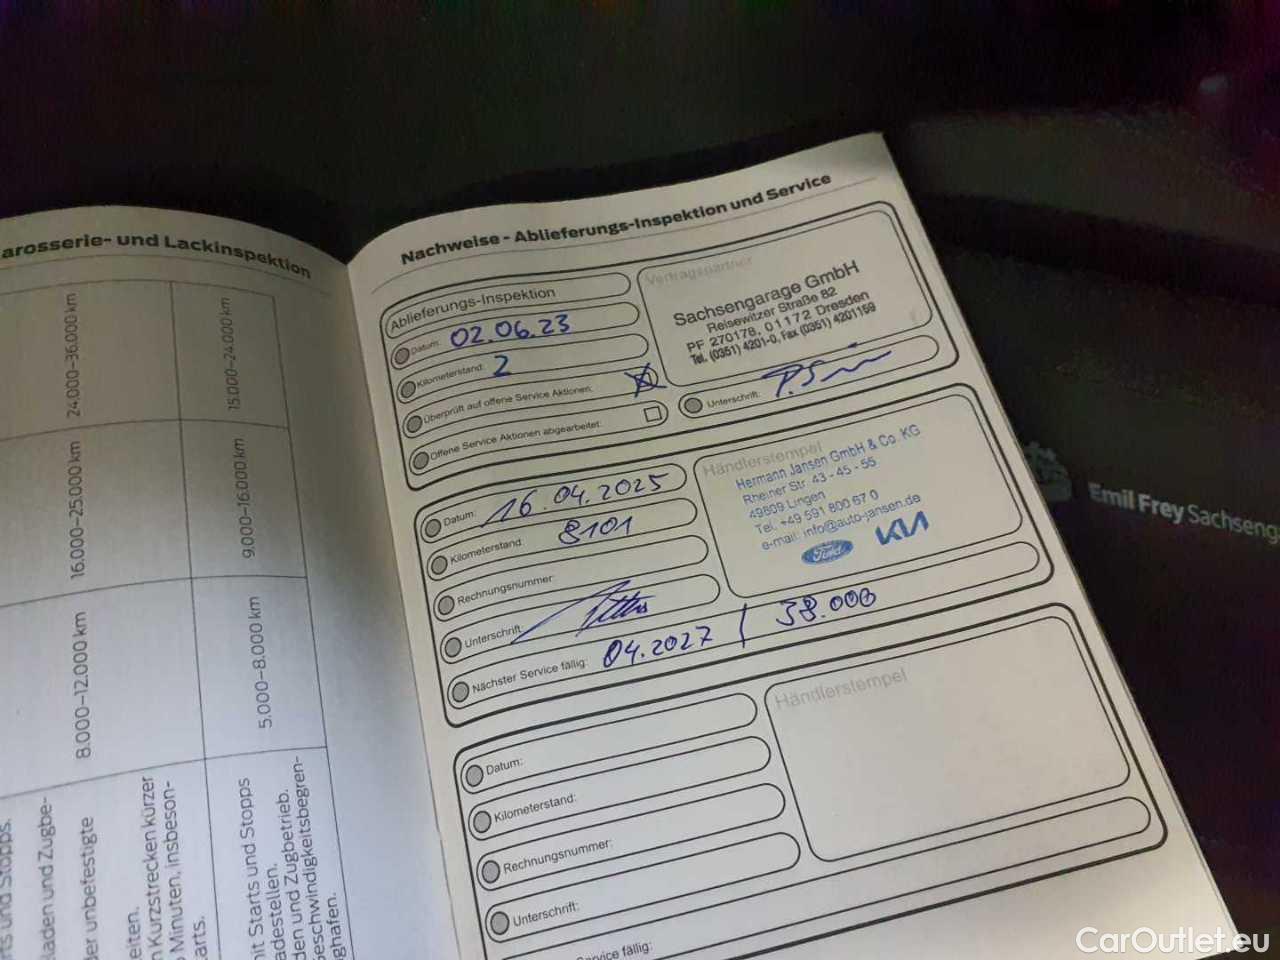 arosserie- und Lackinspektion
24.000–36.000 km
15.000–24.000 km
16.000–25.000 km
9.000–16.000 km
8.000–12.000 km
5.000–8.000 km
rts und Stopps.
laden und Zugbe-
der unbefestigte
eiten.
n Kurzstrecken kürzer
Minuten, insbeson-
arts.
mit Starts und Stopps
adestellen.
den und Zugbetrieb.
eschwindigkeitsbegren-
ghafen.
Nachweise - Ablieferungs-Inspektion und Service
Ablieferungs-Inspektion
Datum: 02.06.23
Kilometerstand: 2
Überprüft auf offene Service Aktionen:
Offene Service Aktionen abgearbeitet:
Vertragspartner
Sachsengarage GmbH
Reisewitzer Straße 82
PF 270178, 01172 Dresden
Tel. (0351) 4201-0, Fax (0351) 4201159
Unterschrift:
Datum: 16.04.2025
Kilometerstand: 8101
Rechnungsnummer:
Unterschrift:
Nächster Service fällig: 04.2027 / 38.000
Händlerstempel
Hermann Jansen GmbH & Co. KG
Rheiner Str. 43 - 45 - 55
49809 Lingen
Tel. +49 591 800 67 0
e-mail: info@auto-jansen.de
Ford KIA
Datum:
Kilometerstand:
Rechnungsnummer:
Unterschrift:
Service fällig:
Händlerstempel
Emil Frey Sachseng
CarOutlet.eu